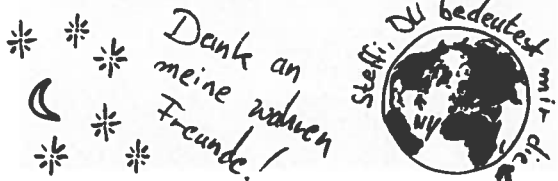 Dank an
meine wahren
Freunde!
Steffi, DU bedeutest mir die
NY